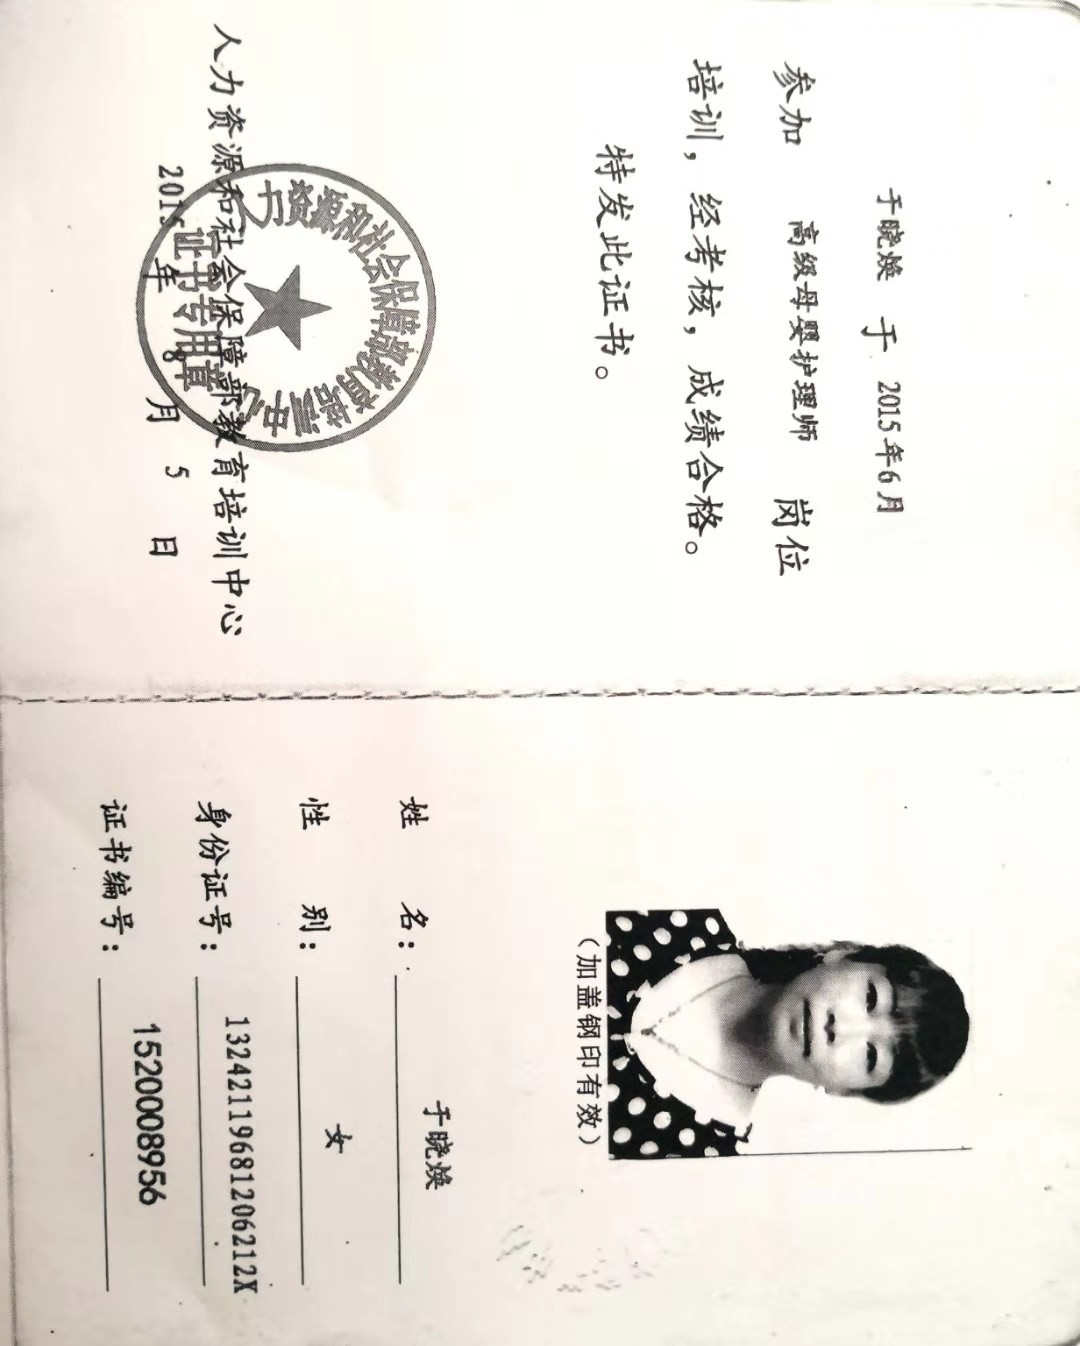 于晓焕 于 2015年6月
参加 高级母婴护理师 岗位
培训，经考核，成绩合格。
特发此证书。
人力资源和社会保障部教育培训中心
2015 年 8 月 5 日
人力资源和社会保障部教育培训中心
证书专用章
（加盖钢印有效）
姓 名： 于晓焕
性 别： 女
身份证号： 13242119681206212X
证书编号： 1520008956